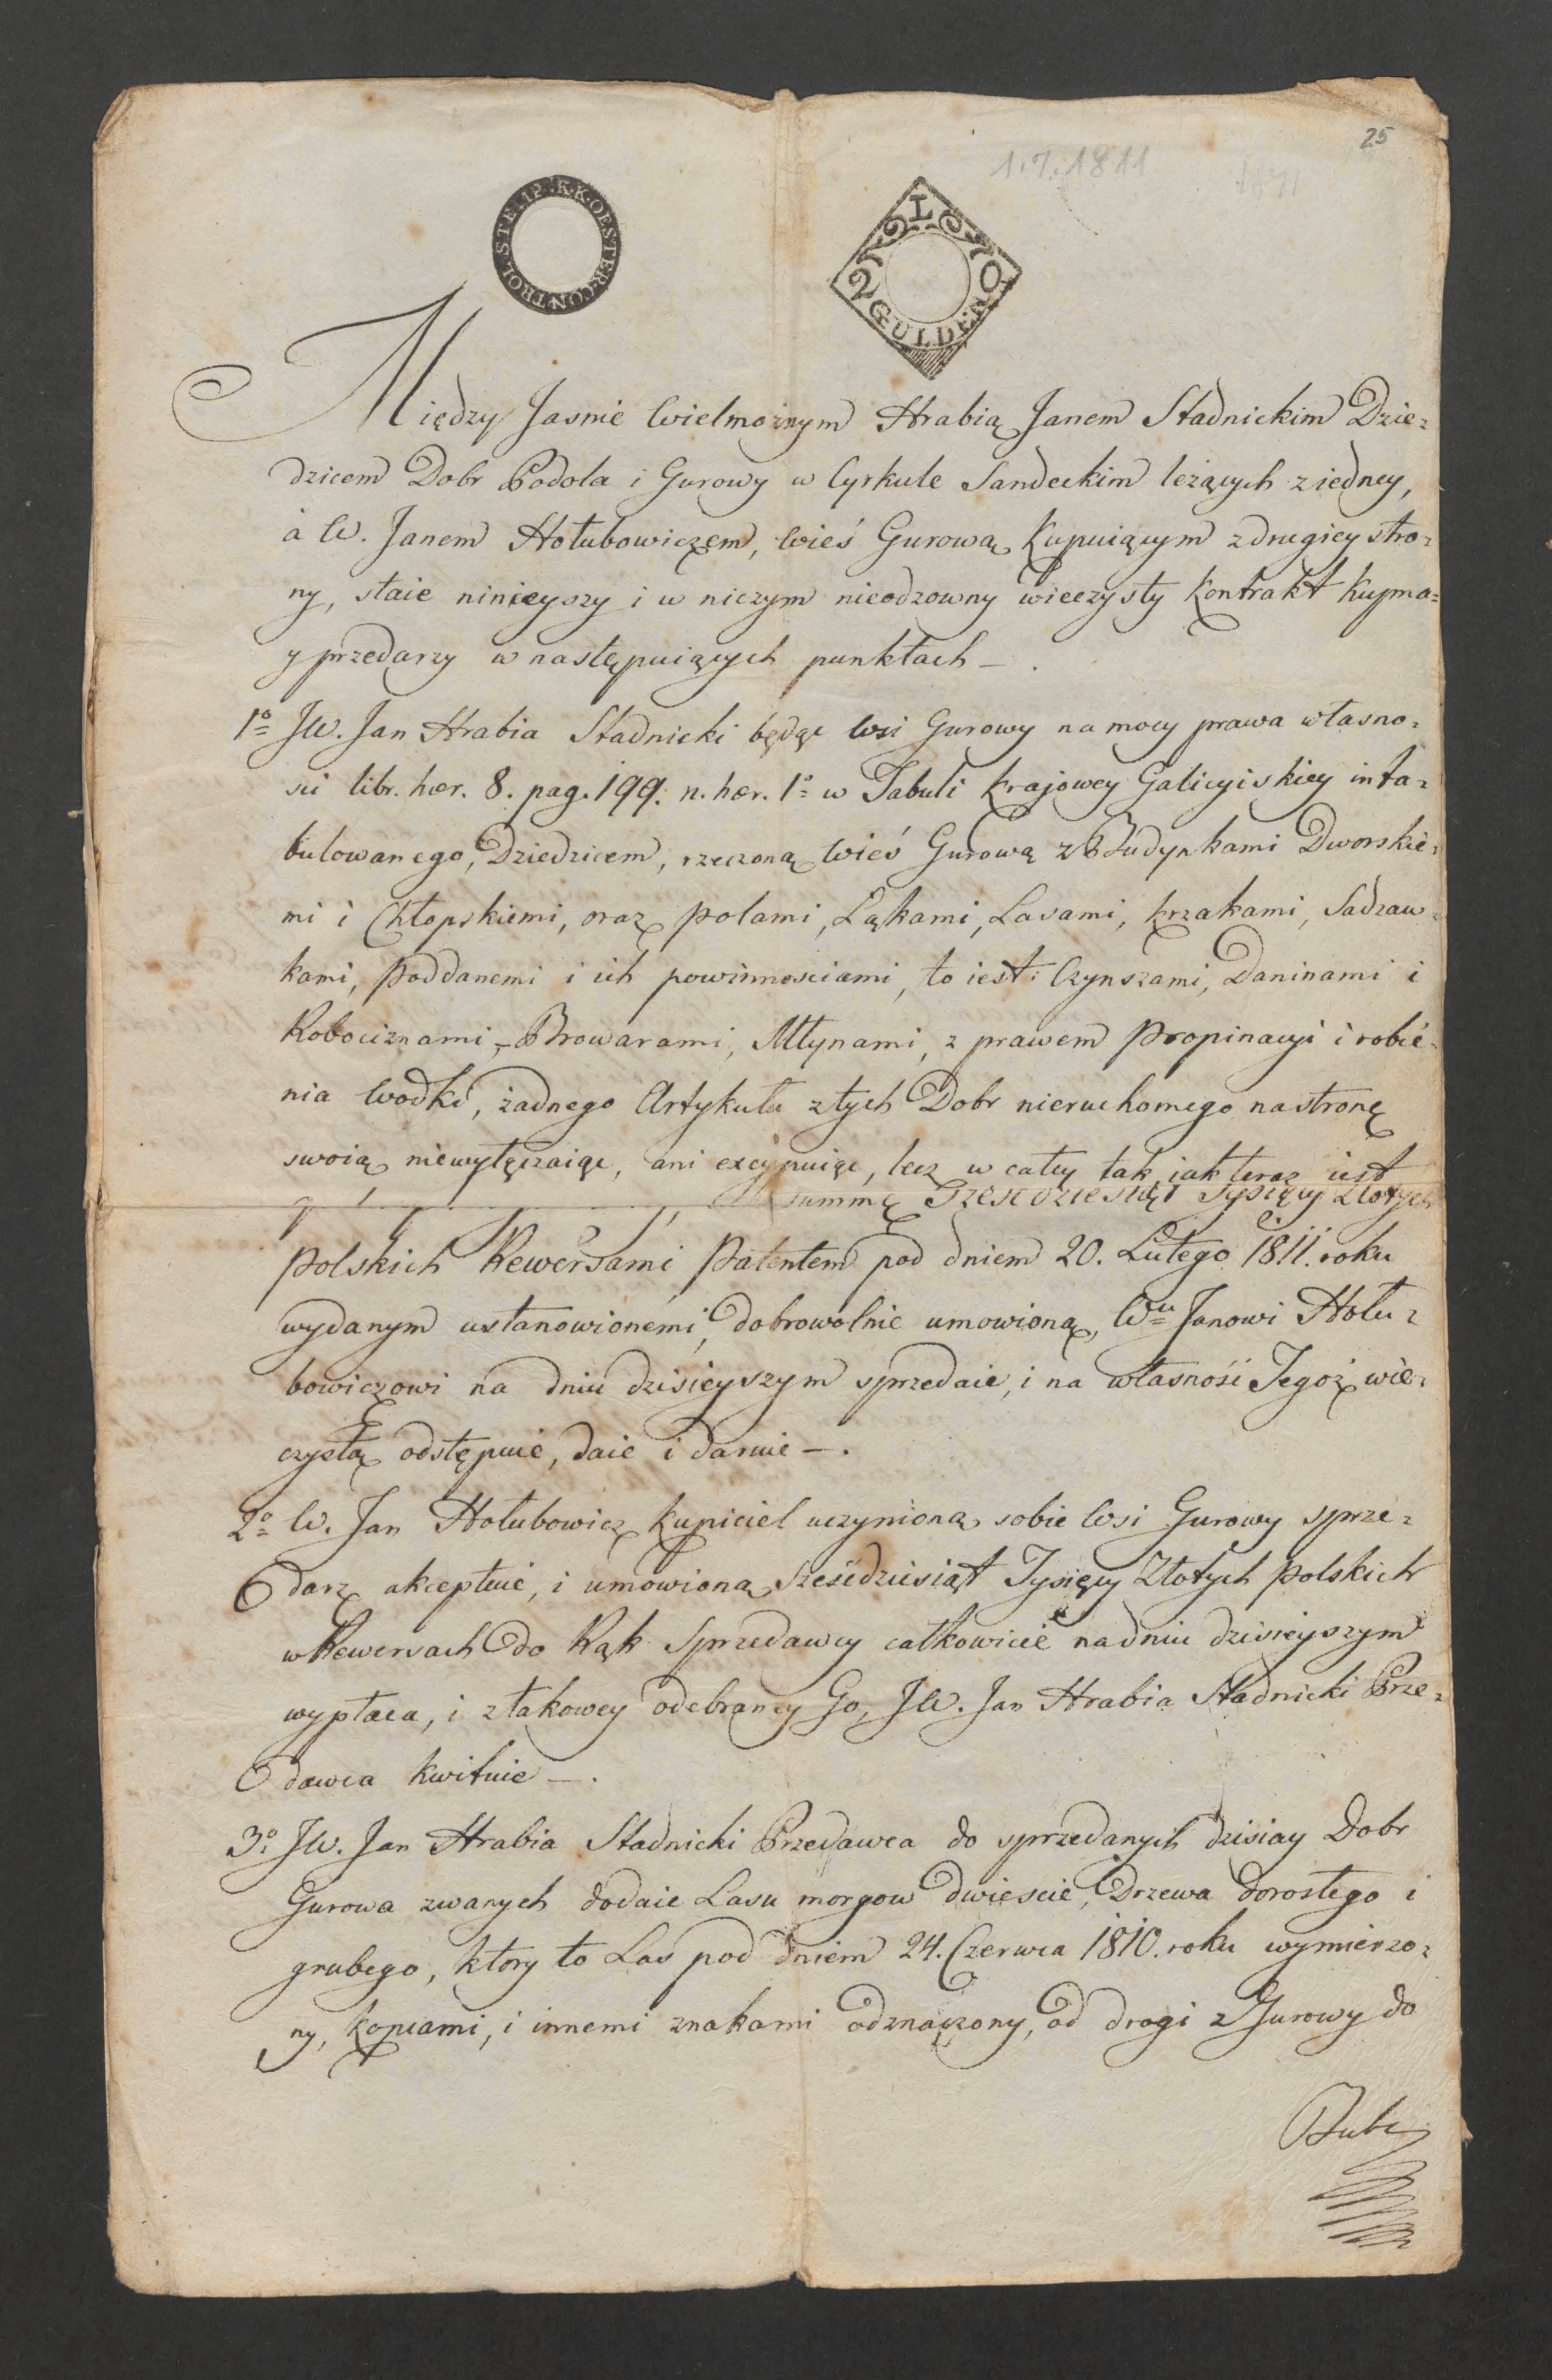 25
1.7.1811
K.K.OESTER.CONTROL.STEMP.
2 GULDEN
Między Jasnie Wielmożnym Hrabią Janem Stadnickim Dzie=
dzicem Dobr Podola i Gurowy w Cyrkule Sandeckim leżących z iedney,
à W. Janem Hołubowiczem, Wieś Gurową Kupuiącym z drugiey stro=
ny, staie ninieyszy i w niczym nieodzowny wieczysty Kontrakt Kupna=
y przedarzy w następuiących punktach —.
1º JW. Jan Hrabia Stadnicki będąc Wsi Gurowy na mocy prawa własno=
sci libr. hær. 8. pag. 199. n. hær. 1º w Tabuli Krajowey Galicyiskiey inta=
bulowanego, Dziedzicem, rzeczoną Wieś Gurową z Budynkami Dworskie=
mi i Chłopskiemi, oraz polami, Łąkami, Lasami, krzakami, Sadzaw=
kami, Poddanemi i ich powinnosciami, to iest: Czynszami, Daninami i
Robociznami, Browarami, Młynami, z prawem Propinacyi i robie=
nia Wodki, żadnego Artykułu z tych Dobr nieruchomego na stronę
swoią niewyłączaiąc, ani excypuiąc, lecz w całey tak iak teraz iest
summę Szesćdziesiąt Tysięcy Złotych
Polskich Rewersami Patentem pod dniem 20. Lutego 1811. roku
wydanym ustanowionemi, dobrowolnie umowioną, Wu Janowi Hołu=
bowiczowi na dniu dzisieyszym sprzedaie, i na własność Tegoż wie=
czystą odstępuie, daie i daruie —.
2º W. Jan Hołubowicz Kupiciel uczynioną sobie Wsi Gurowy sprze=
darz akceptuie, i umowioną Sześćdziesiąt Tysięcy Złotych Polskich
w Rewersach do Rąk Sprzedawcy całkowicie na dniu dzisieyszym
wypłaca, i z takowey odebraney Go, JW. Jan Hrabia Stadnicki Prze=
dawca kwituie —.
3º JW. Jan Hrabia Stadnicki Przedawca do sprzedanych dzisiay Dobr
Gurowa zwanych dodaie Lasu morgow dwiescie, Drzewa dorosłego i
grubego, ktory to Las pod dniem 24. Czerwca 1810. roku wymierzo=
ny, Kopcami, i innemi znakami odznaczony, od drogi z Gurowy do